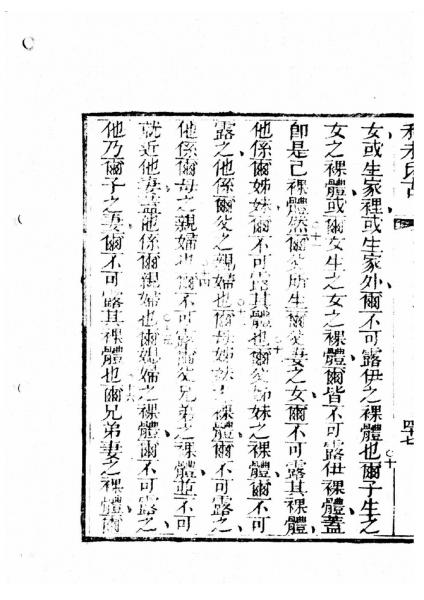 利未氏古
四十七
女或生家裡或生家外爾不可露伊之裸體也爾子生之
女之裸體或爾女生之女之裸體爾皆不可露伊裸體蓋
即是己裸體然爾父所生爾父妻之女爾不可露其裸體
他係爾姊妹爾不可露其體也爾父姊妹之裸體爾不可
露之他係爾父之親婦也爾母姊妹之裸體爾不可露之
他係爾母之親婦也爾不可露爾父兄弟之裸體並不可
就近他妻蓋他係爾親婦也爾媳婦之裸體爾不可露之
他乃爾子之妻爾不可露其裸體也爾兄弟妻之裸體爾